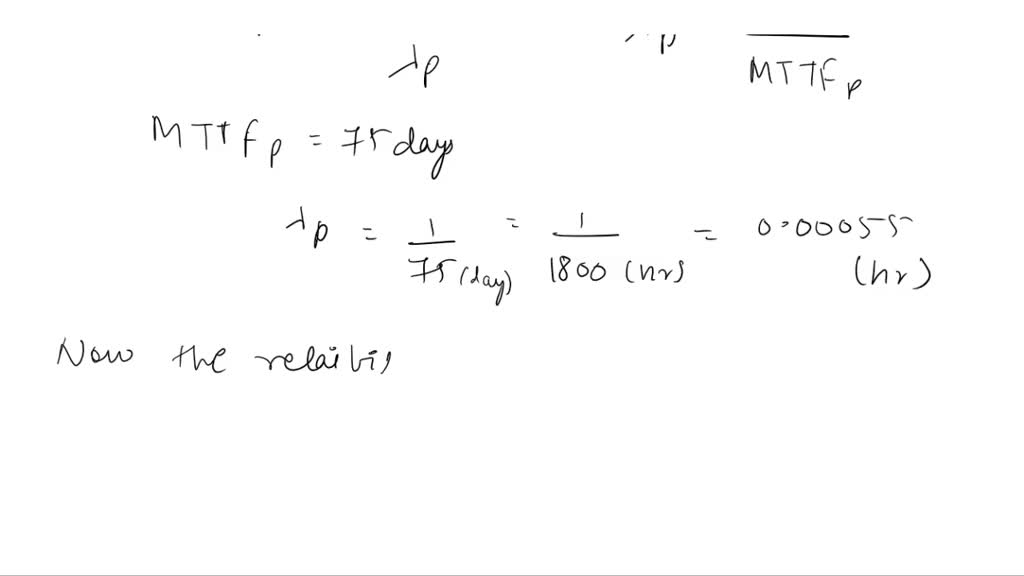 λp MTTFp
MTTFp = 75 days
λp = 1/75 (day) = 1/1800 (hr) = 0.000555 (hr)
Now the relaibi